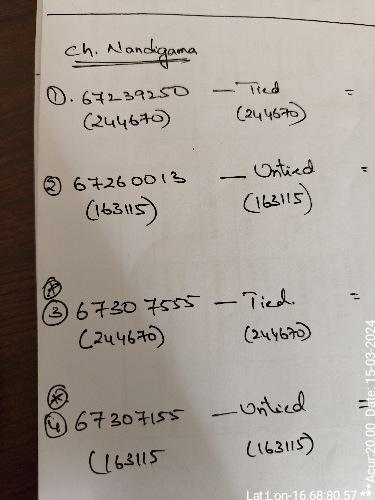 Ch. Nandigama
①. 67239250 — Tied =
(244670) (244670)
② 67260013 — Untied =
(163115) (163115)
③ 67307555 — Tied. =
(244670) (244670)
④ 67307155 — Untied =
(163115 (163115)
Lat:Lon-16.68:80.57 ***Acur:20.00 Date: 15-03-2024